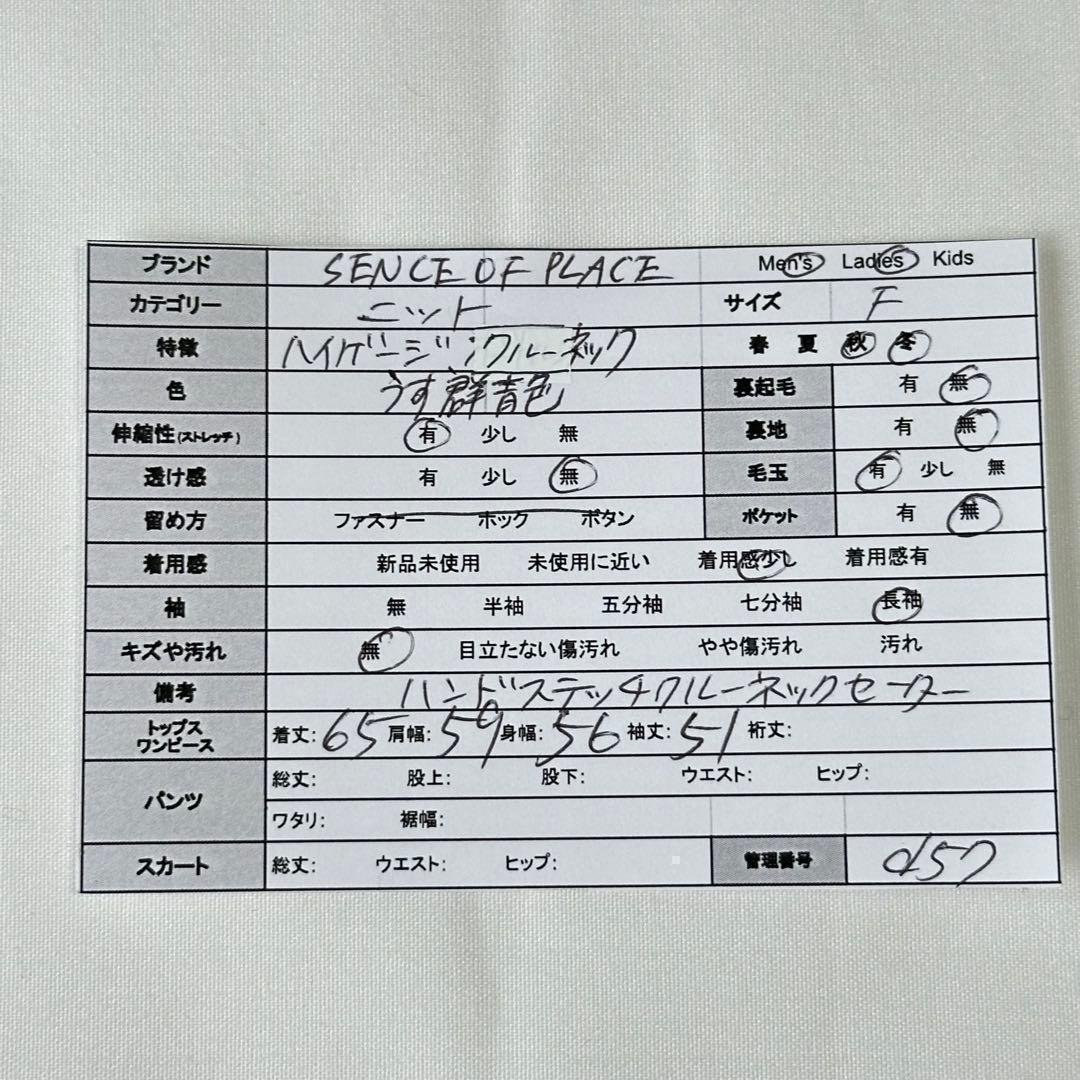 ブランド SENCE OF PLACE Men's Ladies Kids
カテゴリー ニット サイズ F
特徴 ハイゲージ;クルーネック 春 夏 秋 冬
色 うす群青色 裏起毛 有 無
伸縮性(ストレッチ) 有 少し 無 裏地 有 無
透け感 有 少し 無 毛玉 有 少し 無
留め方 ファスナー ホック ボタン ポケット 有 無
着用感 新品未使用 未使用に近い 着用感少し 着用感有
袖 無 半袖 五分袖 七分袖 長袖
キズや汚れ 無 目立たない傷汚れ やや傷汚れ 汚れ
備考 ハンドステッチクルーネックセーター
トップス
ワンピース
着丈: 65 肩幅: 59 身幅: 56 袖丈: 51 裄丈:
パンツ 総丈: 股上: 股下: ウエスト: ヒップ:
ワタリ: 裾幅:
スカート 総丈: ウエスト: ヒップ: 管理番号 d57